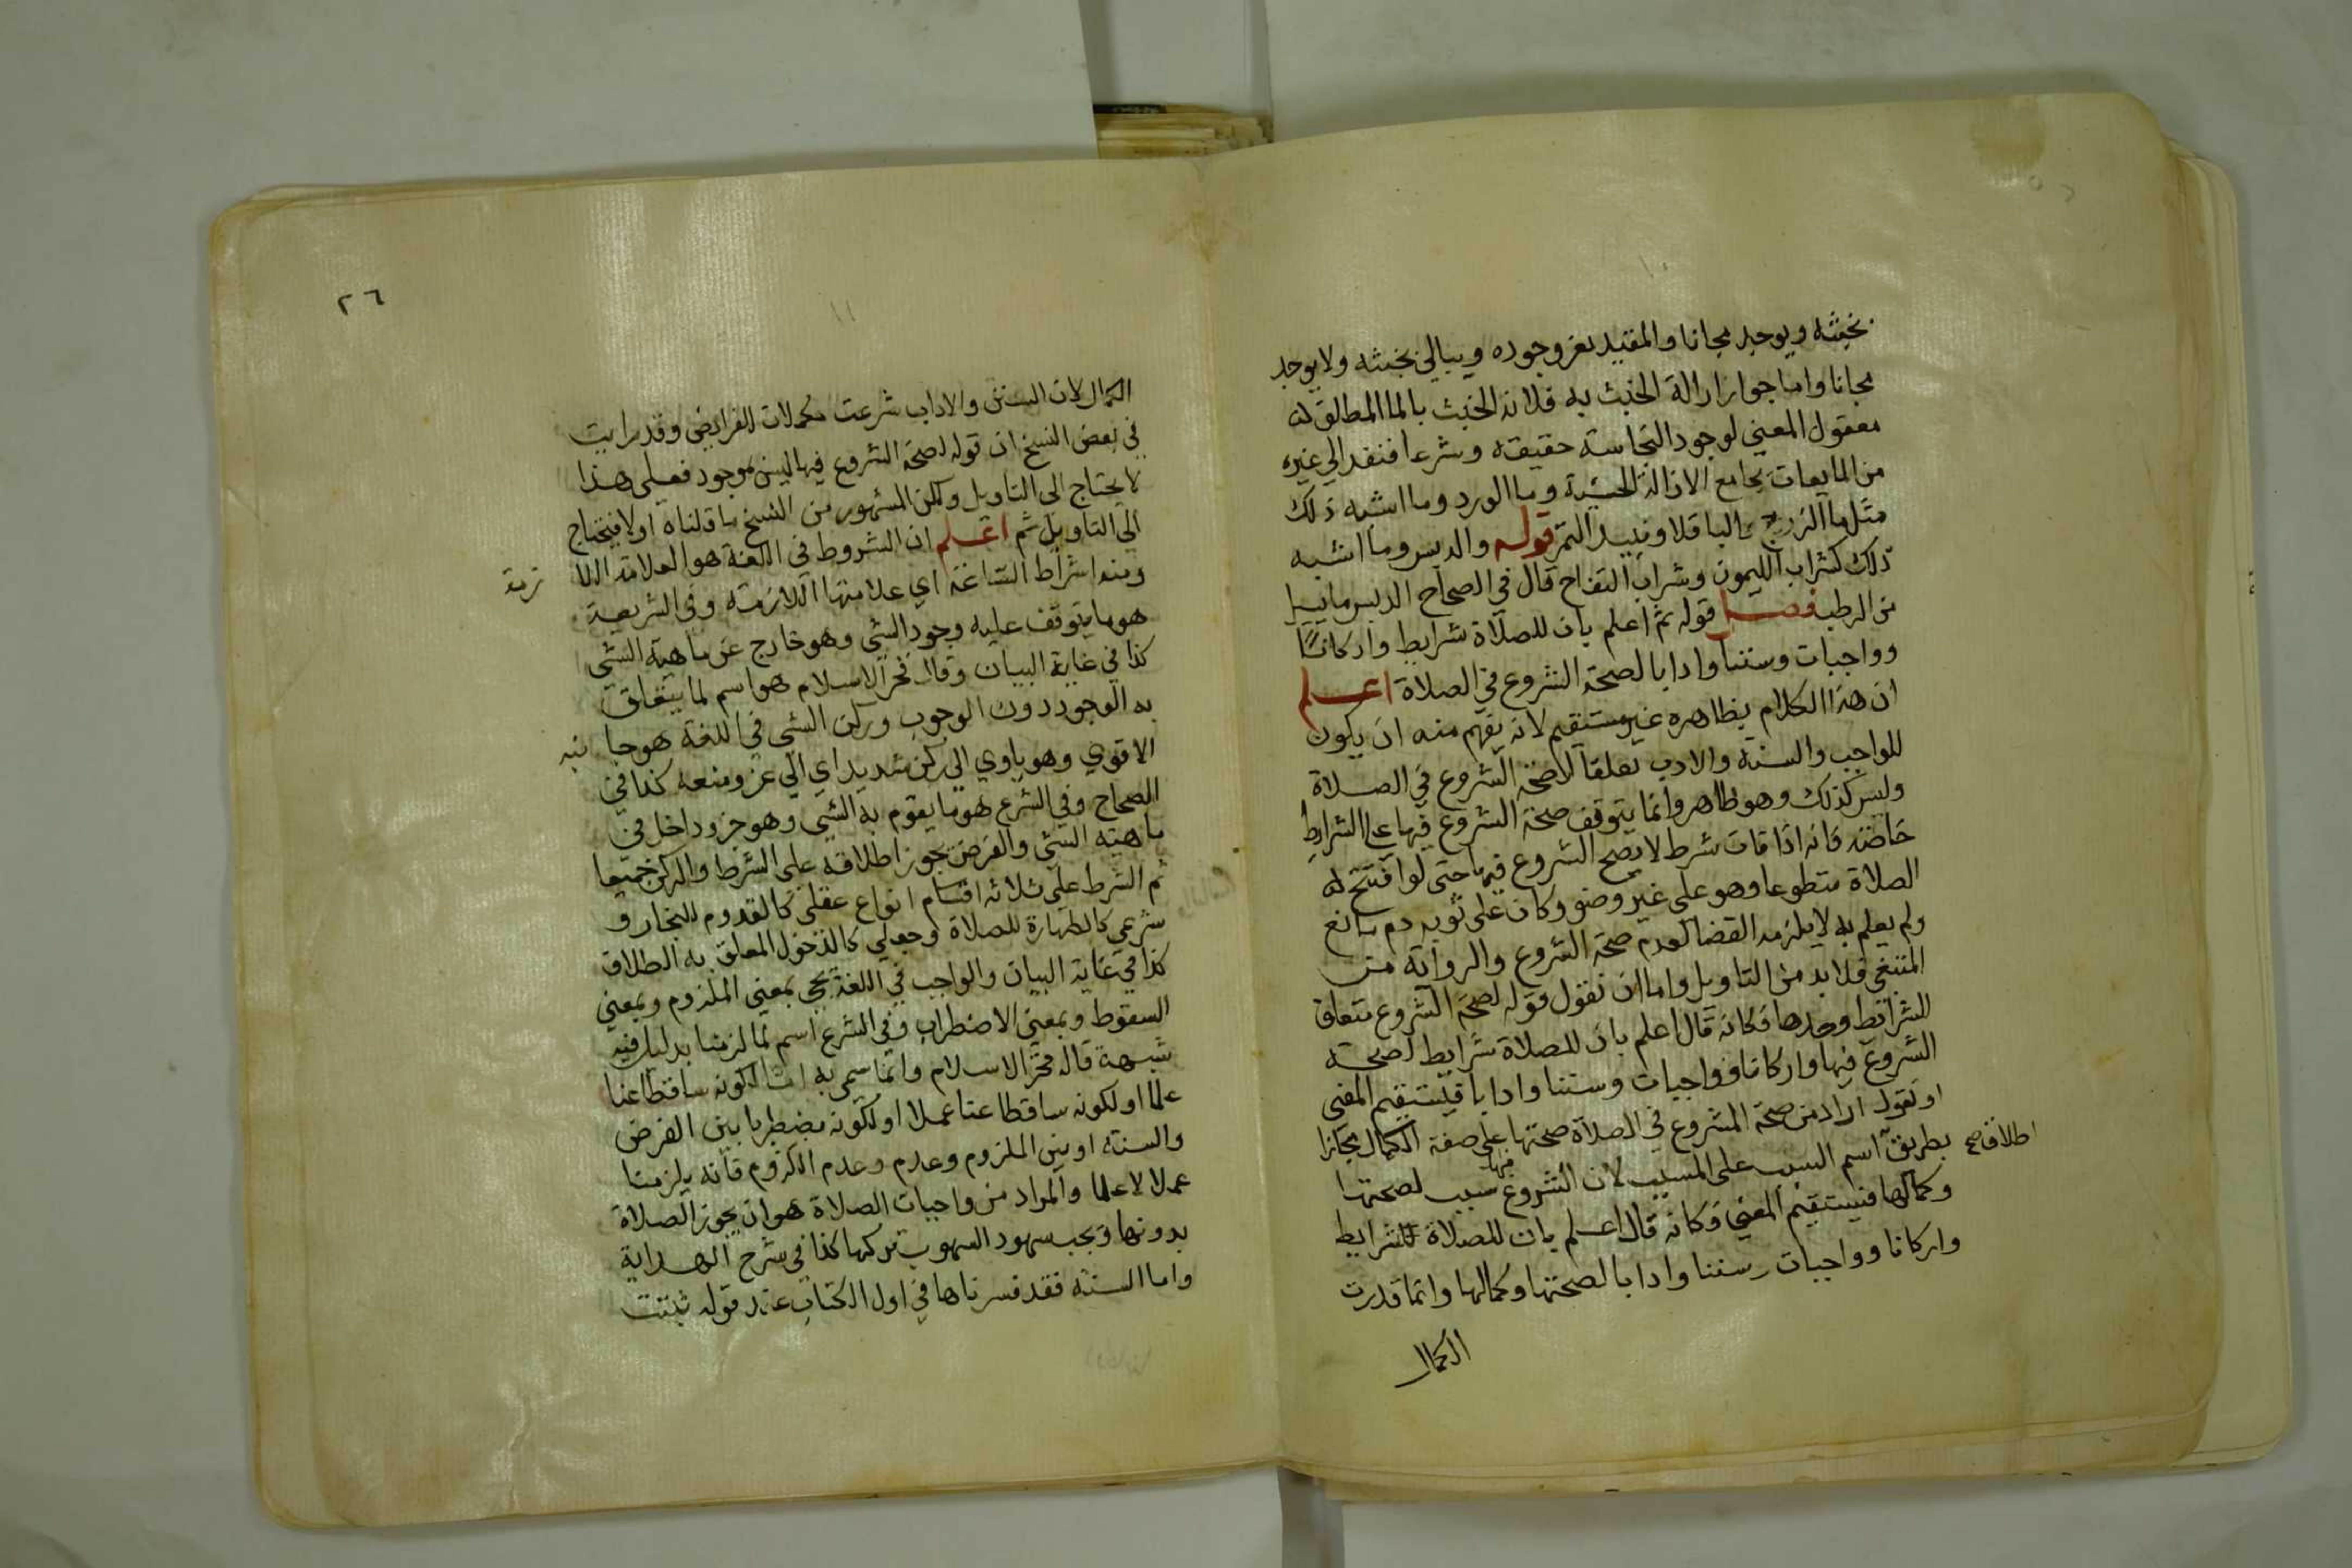 بخبثه ويوجد مجانا والمقيد يعز وجوده ويبالي بخبثه ولا يوجد
مجانا واما جواز ازالة الخبث به فلانه الخبث بالما المطلق لانه
معقول المعني لوجود النجاسته حقيقة وشرعا فنفد الي غيره
من المايعات بجامع الازالة الحسية وما الورد وما اشبه ذلك
مثل ما الزردج وما الباقلا ونبيد التمر قوله والدبس وما اشبه
ذلك كشراب الليمون وشراب التفاح قال في الصحاح الدبس ما يسيل
من الرطب فصل قوله ثم اعلم بان للصلاة شرايط واركانا
وواجبات وسننا وادابا لصحة الشروع في الصلاة اعلم
ان هذا الكلام بظاهره غير مستقيم لانه يفهم منه ان يكون
للواجب والسنة والادب تعلقا لاصحة الشروع في الصلاة
وليس كذلك وهو ظاهر وانما يتوقف صحة الشروع فيها علي الشرايط
خاصة فانه اذا فات شرط لا يصح الشروع فيها حتى لو افتتح
الصلاة متطوعا وهو على غير وضو وكان على ثوبه دم مانع
ولم يعلم به لا يلزمه القضا لعدم صحة الشروع والرواية من
المتبغي فلا بد من التاويل واما ان نقول قوله لصحة الشروع متعلق
للشرائط وحدها فكانه قال اعلم بان للصلاة شرايط لصحة
الشروع فيها واركانا وواجبات وسننا وادابا فيستقيم المعني
او نقول اراد من صحة الشروع في الصلاة صحتها على صفة الكمال مجازا
بطريق اسم السبب على المسبب لان الشروع فيها سبب لصحتها
اطلاق صح
وكمالها فيستقيم المعني وكانه قال اعلم بان للصلاة للشرايط
واركانا وواجبات وسننا وادابا لصحتها وكمالها وانما قدرت
الكمال
٢٦
الكمال لان السنن والاداب شرعت مكملات للفرايض وقد رايت
في بعض النسخ ان قوله لصحة الشروع فيها ليس بموجود فعلى هذا
لا يحتاج الى التاويل ولكن المشهور من النسخ ما قلناه اولا فيحتاج
الى التاويل ثم اعلم ان الشروط في اللغة هو العلامة اللا زمة
ومنه اشراط الساعة اي علامتها اللازمة وفي الشريعة
هو ما يتوقف عليه وجود الشي وهو خارج عن ماهية الشي
كذا في غاية البيان وقال فخر الاسلام هو اسم لما يتعلق
به الوجود دون الوجوب وركن الشي في اللغة هو جا نبه
الاقوي وهو ياوي الي ركن شديد اي الي عز ومنعه كذا في
الصحاح وفي الشرع هو ما يقوم به الشي وهو جزو داخل في
ماهية الشي والفرض يجوز اطلاقه على الشرط والركن جميعا
ثم الشرط على ثلاثه اقسام انواع عقلي كالقدوم للنجار و
شرعي كالطهارة للصلاة وجعلي كالدخول المعلق به الطلاق
كذا في غاية البيان والواجب في اللغة يجي بمعني الملزوم وبمعني
السقوط وبمعني الاضطراب وفي الشرع اسم لما لزمنا بدليل فيه
شبهة قاله فخر الاسلام وانما سمي به اما لكونه ساقطا عنا
علما او لكونه ساقطا عنا عملا او لكونه مضطربا بين الفرض
والسنة او بين الملزوم وعدم وعدم اللزوم فانه يلزمنا
عملا لا علما والمراد من واجبات الصلاة هو ان يجوز الصلاة
بدونها ويجب سهود السهو بتركها كذا في شرح الهداية
واما السنة فقد فسرناها في اول الكتاب عند قوله ثبتت